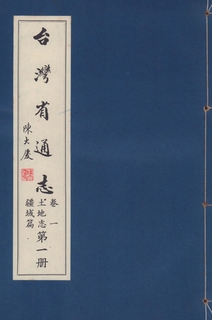 台灣省通志
陳大慶
卷一
土地志
疆域篇
第一册